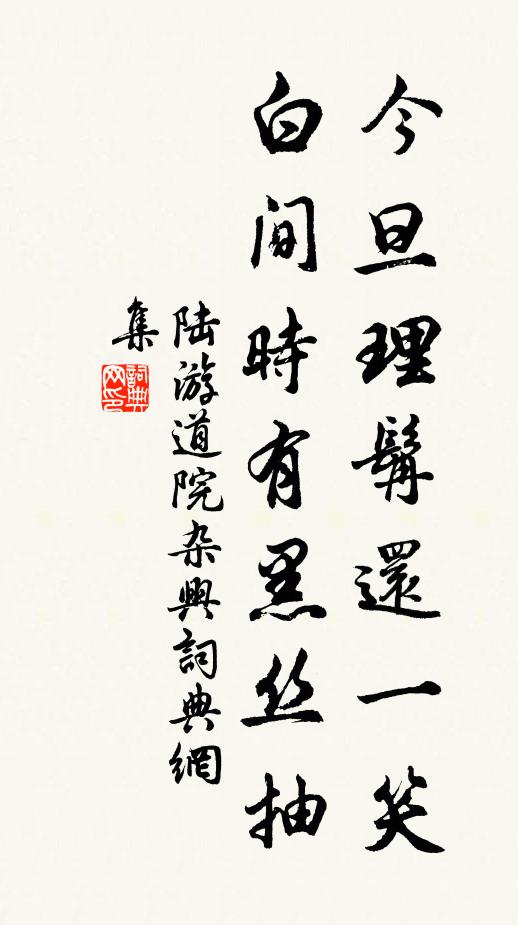 今旦理髯還一笑
白間時有黑丝抽
陆游道院杂興詞典網
集
詞典网印